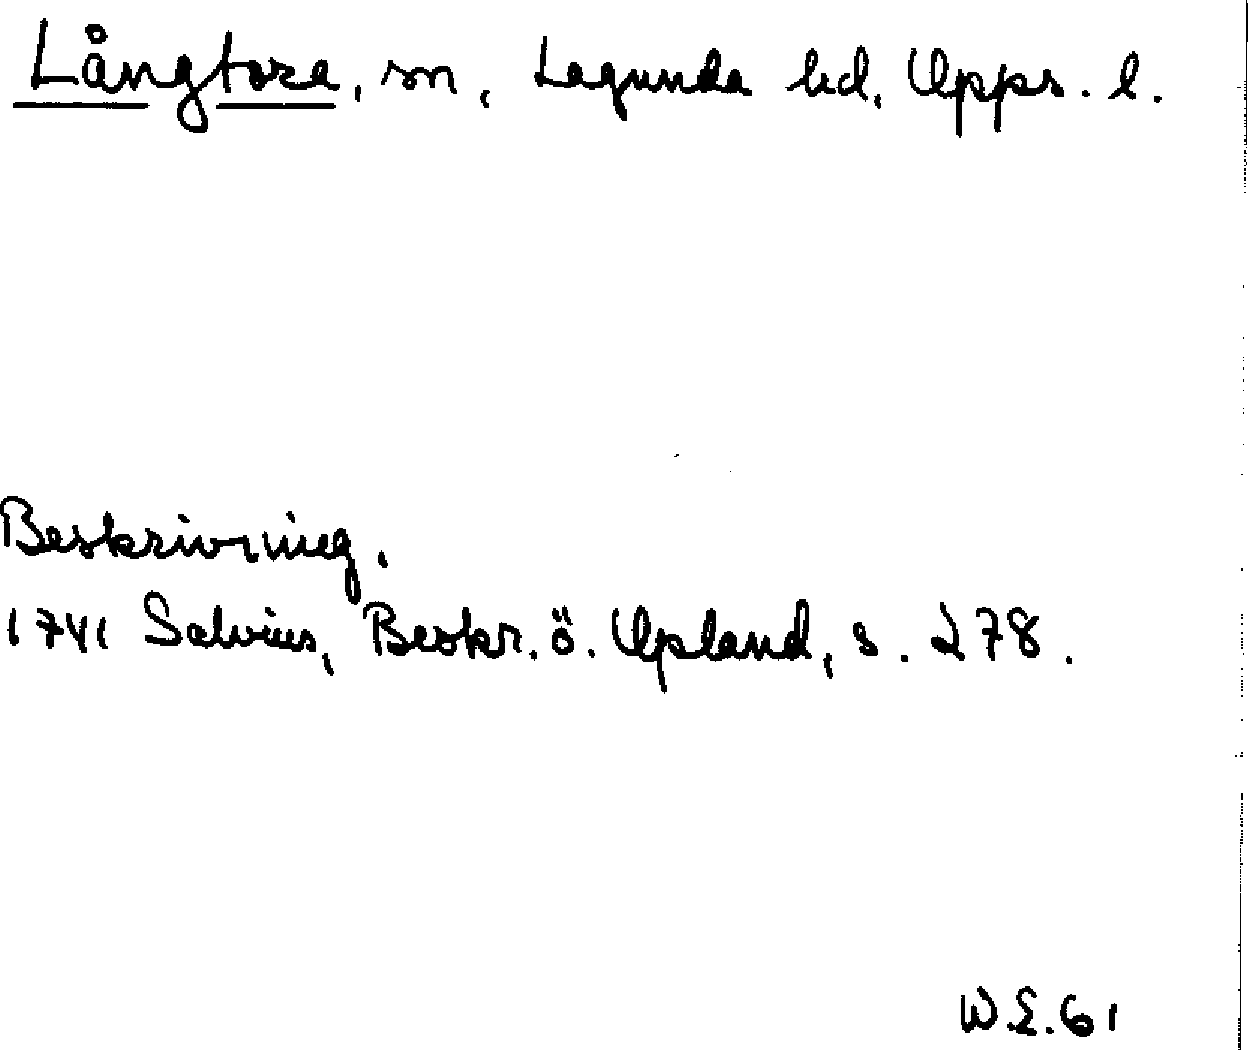 Långtora, sn, Lagunda hd, Upps. l.
Beskrivning.
1741 Salvius, Beskr. ö. Upland, s. 278.
W.E. 61